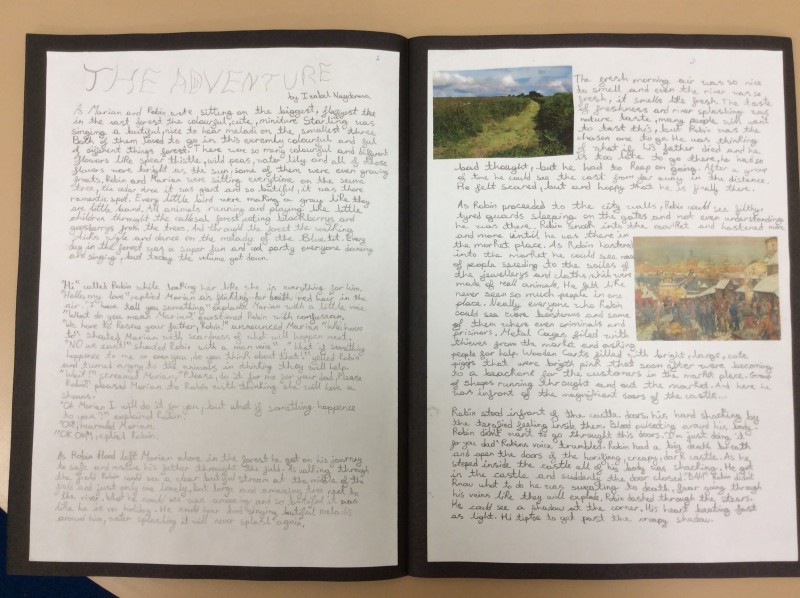 THE ADVENTURE
by Izabel
As Marian and Robin were sitting on the biggest, the
in the vast forest the colourful, cute, miniture Starling was
singing a butiful, nice to hear melodi on the smallest three.
Both of them loved to go in this extremly colourful and full
of different things forest. There were so many colourful and different
flowers like spear thistle, wild peas, water lily and all of those
flowers were bright as the sun, some of them were even growing
fruits. Robin and Marian were sitting everytime on the same
tree, the ceder tree it was giant and so butiful, it was there
romantic spot. Every little bird were making a group like they
are little band. All animals running and playing like little
children throught the forest eating blackberrys and
gosberrys from the trees. And throught the forest the walking
ducks sigle and dance on the melody of the Blue tit. Every
day in the forest was a super fun and cool party everyone dancing
and singing, but today the volume got down.
"Hi" called Robin while looking her like she is everything for him.
"Hello my love" replied Marian air flicking her red hair in the
air. "I have tell you something" explained Marian with a little voice.
"What do you mean Marian" questioned Robin with confusion.
"We have to Rescue your father, Robin!" announced Marian "We have
to!" shouted Marian with scardness of what will happen next.
"NO we can't!" shouted Robin with a man voice. "What if something
happence to me or even you, do you think about that!" yelled Robin
and turned angry to the animals on thinking they will help.
"What?" screamed Marian, "Please, do it for me for your dad, Please
Robin" pleased Marian to Robin with thinking she will have a
chance.
"Ok Marian I will do it for you, but what if something happence
to you" explained Robin.
"Ok", murmuled Marian.
"OK Ok", replied Robin.
As Robin Hood left Marian alone in the forest he got on his journey
to safe and resive his father throught the field. As walking through
the field Robin could see a clear butiful stream at the middle of the
feld and just only one lonely, but large and amaizing tree next to
the river. What he could see was amaizing and so butiful it was
like he is on holiday. He could hear bird singing butiful melodi
around him, water splashing it will never splash again.
2
The fresh morning air was so nice
to smell and even the river was so
fresh, it smells like fresh. The taste
of freshness and river splashing and
nature taste, many people will want
to taste this, but Robin was the
chosen one to go. He was thinking
of what if his father died and he
is too late to go there, he had so
bad thought, but he had to keep on going. After a group
of time he could see the cast from far away in the distance.
He felt scared, but and happy that he is finally there.
As Robin proceeded to the city walls, Robin could see filthy
tyred guards sleeping on the gates and not even understanding
he was there. Robin snook into the market and hastened more
and more until he was there in
the market place. As Robin hastened
into the market he could see most
of people speeding to the smiles of
the jewellerys and cloths which were
made of real animals. He felt like
never seen so much people in one
place. Neally everyone who Robin
could see were batsmans and some
of them where even criminals and
prisiners. Metal Cages filled with
thieves from the market and asking
people for help. Wooden Carts filled with bright, large, cute
piggs that were bright pink that soon after were becoming
to a backend for the customers in the market place. Group
of sheeps running throught and out the market. And here he
was infront of the magnificent doors of the castle...
Robin stood infront of the castle doors, his hand shacking by
the terrified feeling inside them. Blood pulsating around his body.
Robin didn't want to go throught this doors. "I'm just doing it
for you dad" Robins voice trumbled. Robin had a big death breath
and open the doors of the horifying, creapy, dark castle. As he
steped inside the castle all of his body was shacking. He got
in the castle and suddenly the door closed "BAM". Robin didn't
know what to do he was sweating to death, fear going through
his vains like they will explode. Robin dashed through the stears.
He could see a shadow at the corner. His heart beating fast
as light. Hi tiptoe to get past the creapy shadow.